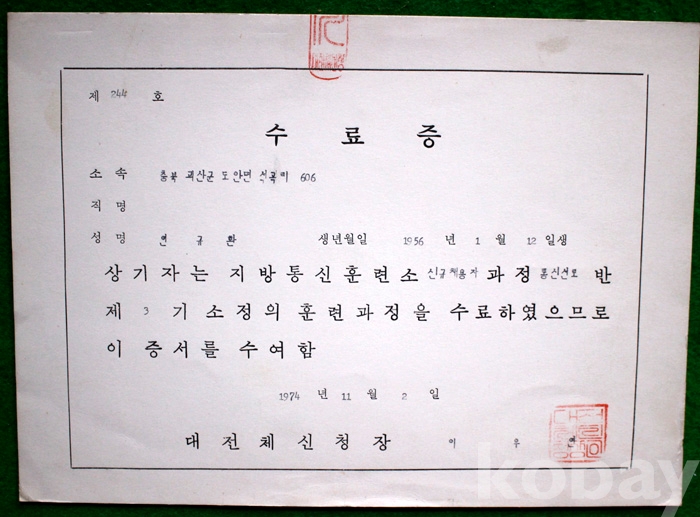 제 244 호
수 료 증
소 속 충북 괴산군 도안면 석곡리 606
직 명
성 명 연 규 환 생년월일 1956 년 1 월 12 일생
상기자는 지방통신훈련소 신규채용자 과정 통신선로 반
제 3 기 소정의 훈련과정을 수료하였으므로
이 증서를 수여함
1974 년 11 월 2 일
대 전 체 신 청 장 이 우 연
kobay